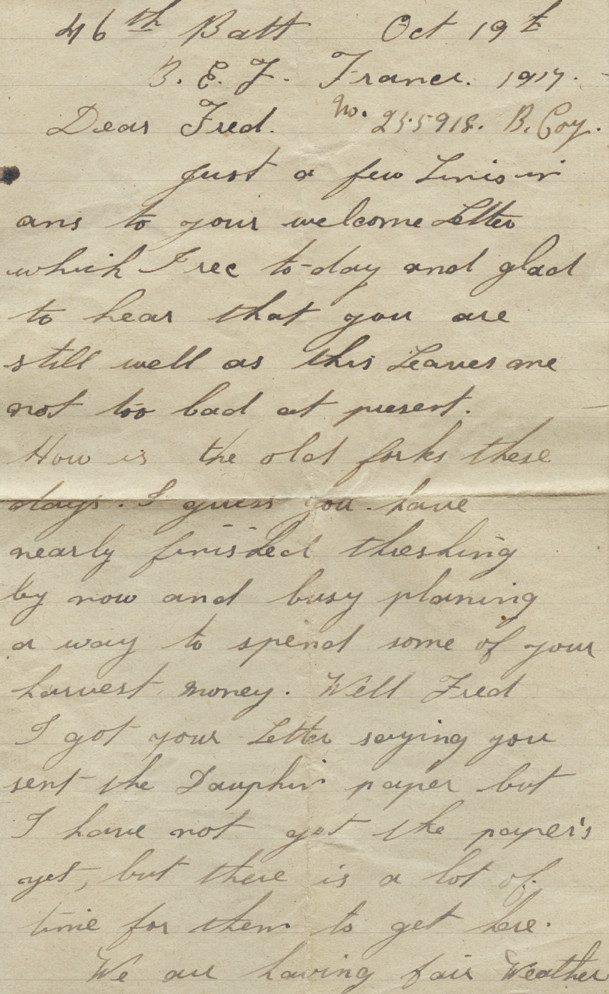 46th Batt Oct 19th
B. E. F. France. 1917.
Dear Fred. No. 255918. B. Coy.
Just a few Lines in
ans to your welcome Letter
which I rec to-day and glad
to hear that you are
still well as this Leaves me
not too bad at present.
How is the old forks these
days. I guess you have
nearly finished theshing
by now and busy planing
a way to spend some of your
harvest money. Well Fred
I got your Letter saying you
sent the Dauphin paper but
I have not got the paper's
yet, but there is a lot of
time for them to get here.
We are having fair Weather